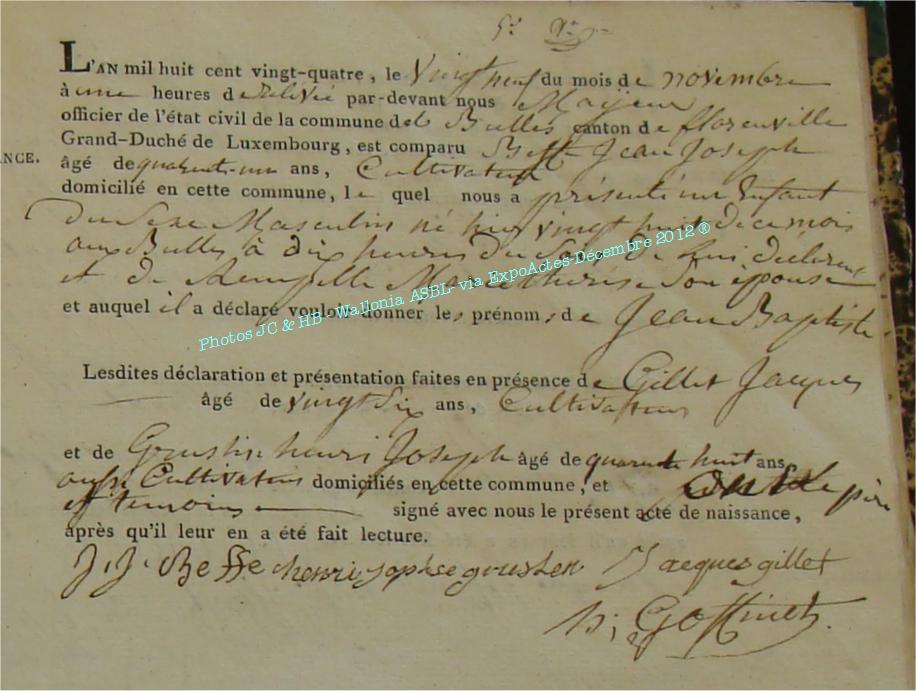 L'AN mil huit cent vingt-quatre, le vingt neuf du mois de novembre
à une heures de relivée par-devant nous Mayeur
officier de l'état civil de la commune de Bulles canton de florenville
Grand-Duché de Luxembourg, est comparu Beffe Jean Joseph
ANCE.
âgé de quarent-un ans, Cultivateur
domicilié en cette commune, le quel nous a présenté un Enfant
du Sexe Masculin né hier vingt huit de ce mois
aux Bulles à dix heures du Soir, de lui déclarant
et de Marie thérèse Son épouse
et auquel il a déclaré vouloir donner les prénoms de Jean Baptiste
Photos JC & HB- Wallonia ASBL- via ExpoActes-Décembre 2012 ®
Lesdites déclaration et présentation faites en présence de Gillet Jacques
âgé de vingt Six ans, Cultivateur
et de henri Joseph âgé de quarente huit ans
aussi Cultivateur domiciliés en cette commune, et ont le père
et temoins signé avec nous le présent acte de naissance,
après qu'il leur en a été fait lecture.
J. J. Beffe henri josphse Jacques gillet
Goffinet